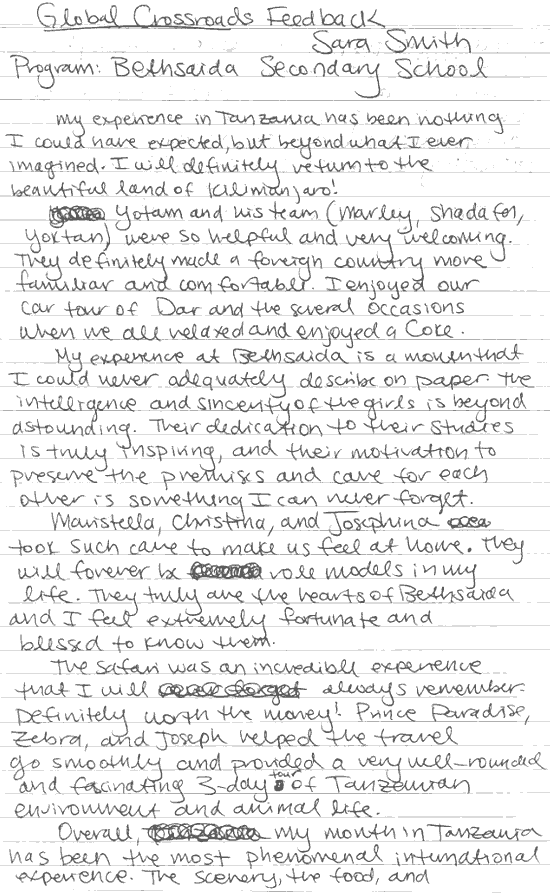 Global Crossroads Feedback
Sara Smith
Program: Bethsaida Secondary School
my experience in Tanzania has been nothing
I could have expected, but beyond what I ever
imagined. I will definitely return to the
beautiful land of Kilimanjaro!
Yotam and his team (Marley, Shadafor,
Yoktan) were so helpful and very welcoming.
They definitely made a foreign country more
familiar and comfortable. I enjoyed our
car tour of Dar and the several occasions
when we all relaxed and enjoyed a Coke.
My experience at Bethsaida is a month that
I could never adequately describe on paper. The
intelligence and sincerity of the girls is beyond
astounding. Their dedication to their studies
is truly inspiring, and their motivation to
preserve the premises and care for each
other is something I can never forget.
Maristella, Christina, and Josephina
took such care to make us feel at home. They
will forever be role models in my
life. They truly are the hearts of Bethsaida
and I feel extremely fortunate and
blessed to know them.
The safari was an incredible experience
that I will always remember.
Definitely worth the money! Prince Paradise,
Zebra, and Joseph helped the travel
go smoothly and provided a very well-rounded
and fascinating 3-day tour of Tanzanian
environment and animal life.
Overall, my month in Tanzania
has been the most phenomenal international
experience. The scenery, the food, and